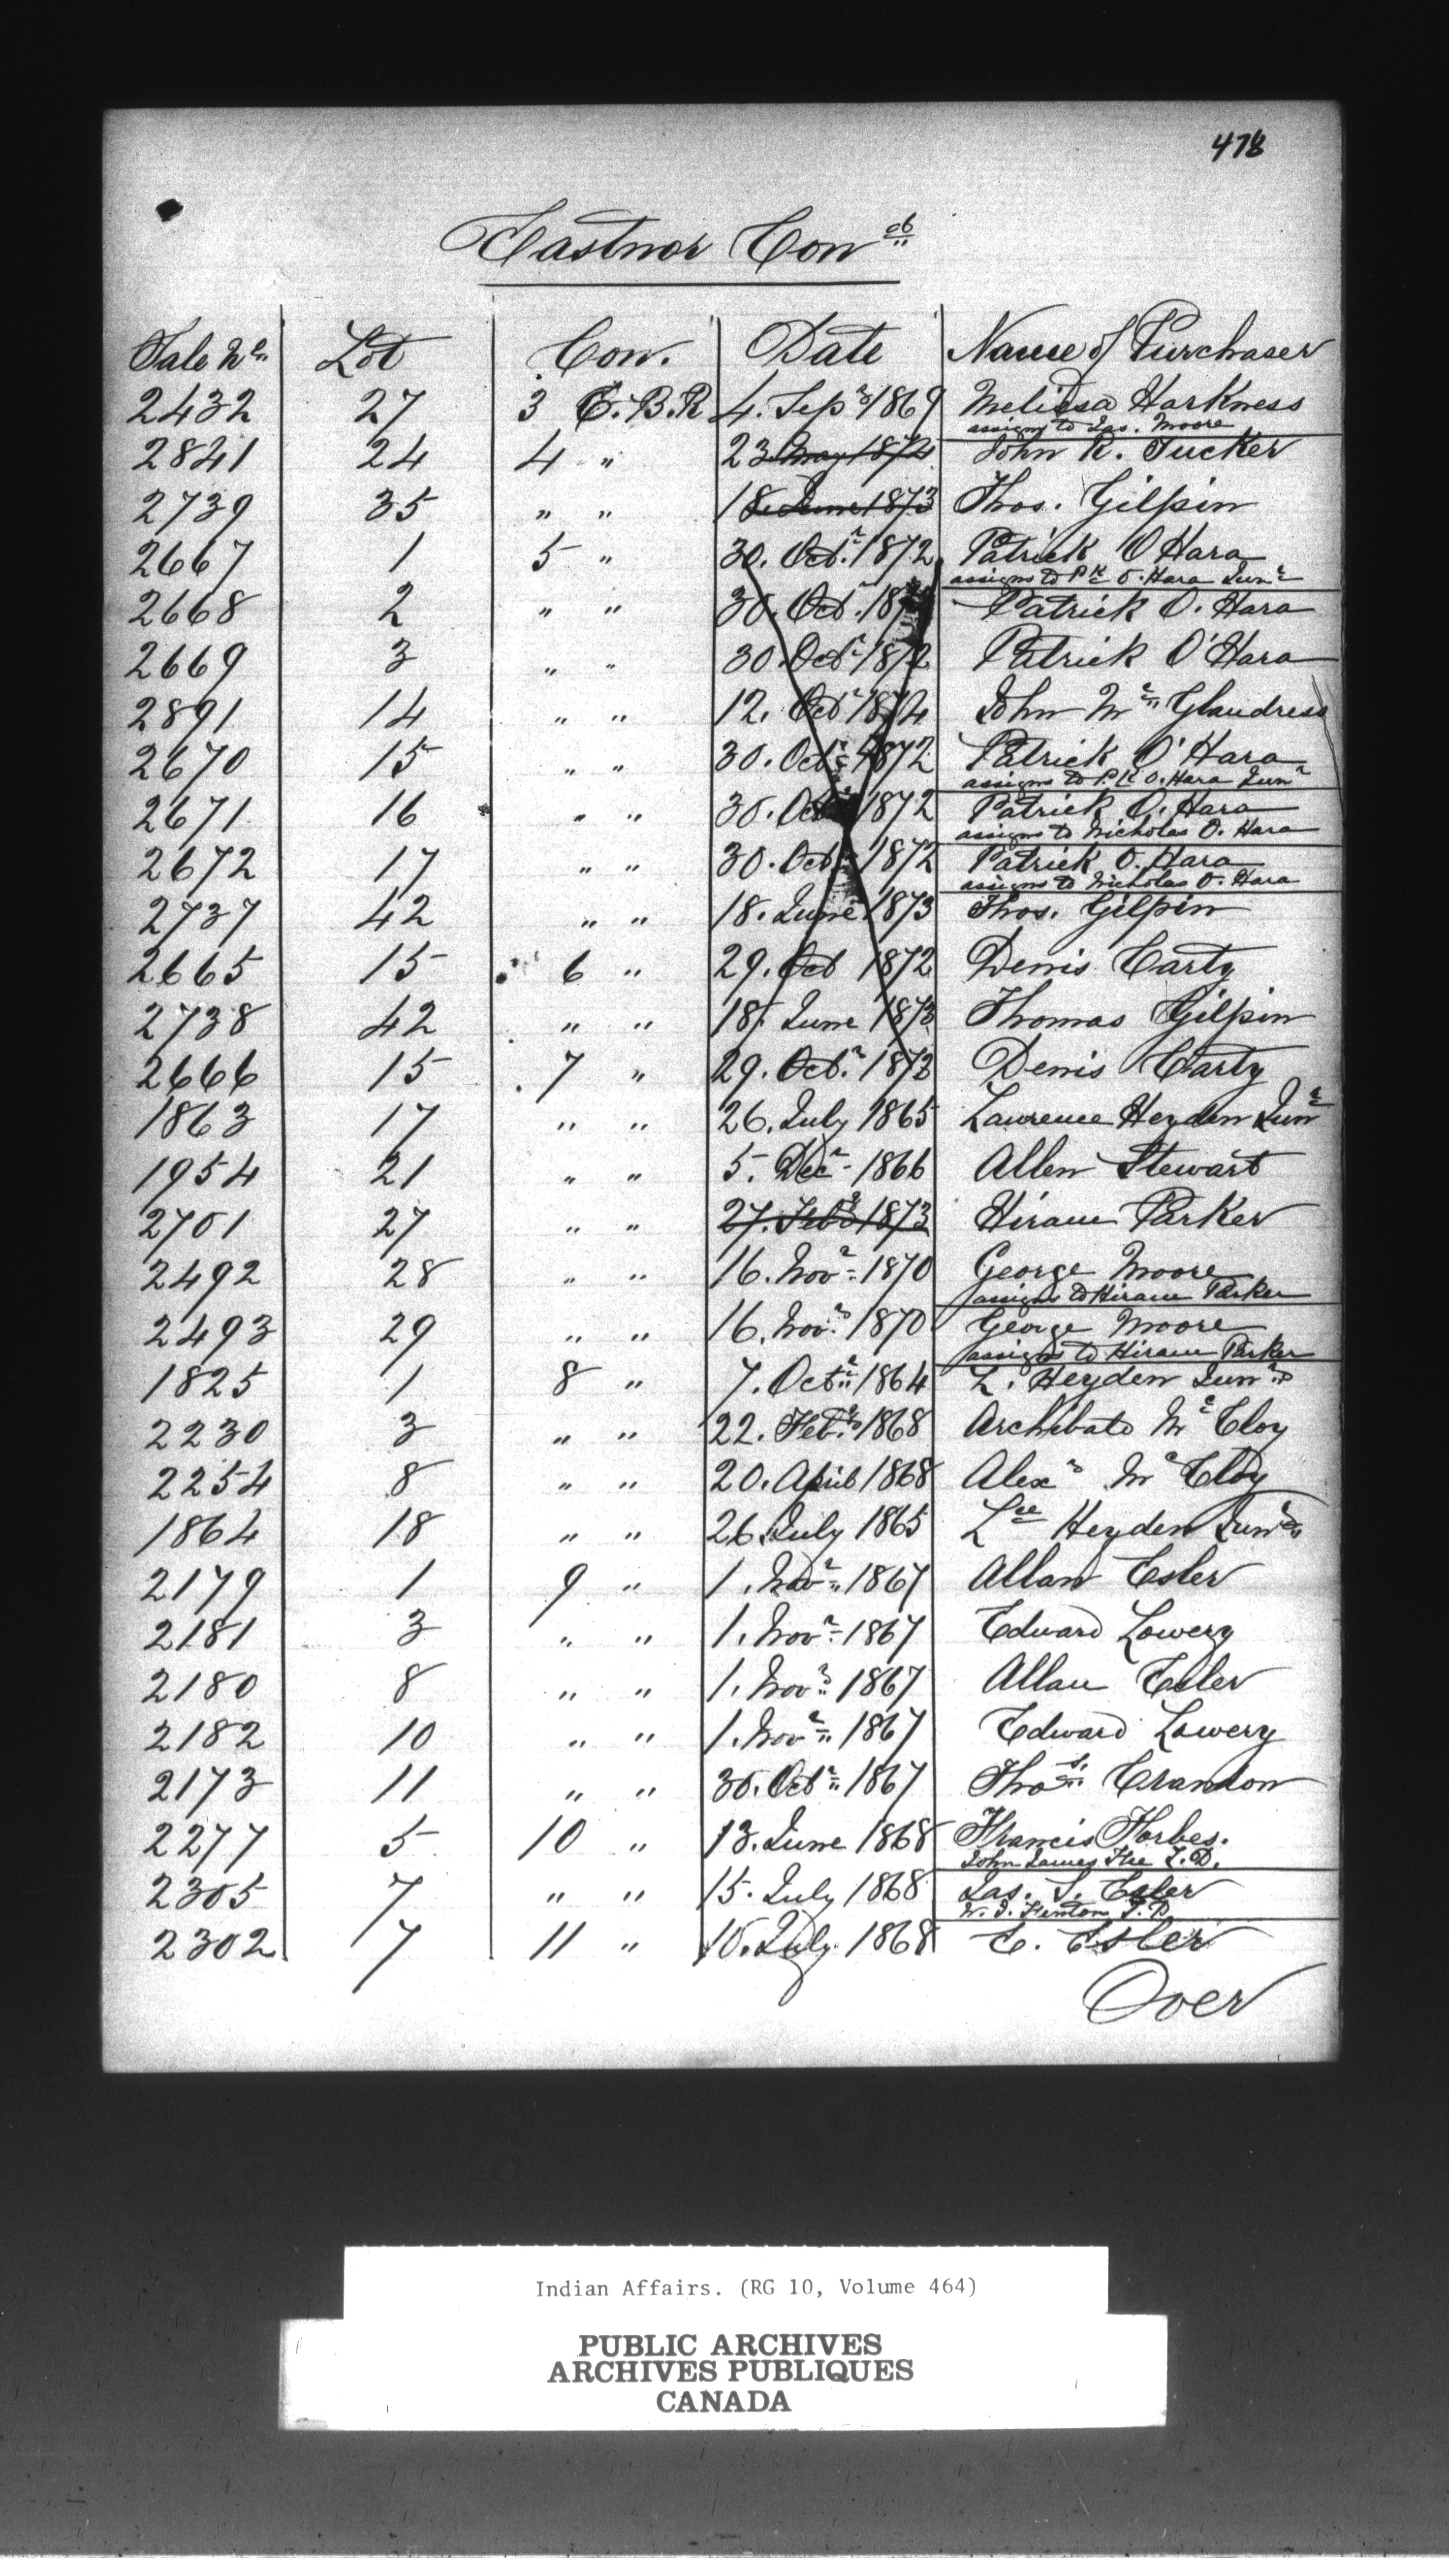 478
Eastnor Con
Sale No. Lot Con. Date Name of Purchaser
2432 27 3 E.B.R 4. Sepr 1869 Melissa Harkness
assigns to Jas. Moore
2841 24 4 " 23 May 1874 John R. Tucker
2739 35 " " 18. June 1873 Thos. Gilpin
2667 1 5 " 30. Octr. 1872 Patrick O Hara
assigns to Pk O. Hara Junr
2668 2 " " 30. Octr. 1872 Patrick O. Hara
2669 3 " " 30. Octr 1872 Patrick O'Hara
2891 14 " " 12. Octr 1874 John Mc Glandress
2670 15 " " 30. Octr 1872 Patrick O'Hara
assigns to Pk O. Hara Junr
2671 16 " " 30. Octr 1872 Patrick O. Hara
assigns to Nicholas O. Hara
2672 17 " " 30. Octr 1872 Patrick O. Hara
assigns to Nicholas O. Hara
2737 42 " " 18. June 1873 Thos. Gilpin
2665 15 6 " 29. Oct 1872 Denis Carty
2738 42 " " 18. June 1873 Thomas Gilpin
2666 15 7 " 29. Octr. 1872 Denis Carty
1863 17 " " 26. July 1865 Lawrence Heyden Junr
1954 21 " " 5. Decr 1866 Allen Stewart
2701 27 " " 27. Feby 1873 Hiram Parker
2492 28 " " 16. Novr 1870 George Moore
assigns to Hiram Parker
2493 29 " " 16. Novr. 1870 George Moore
assigns to Hiram Parker
1825 1 8 " 7. Octr 1864 L. Heyden Junr
2230 3 " " 22. Feby 1868 Archibald McCloy
2254 8 " " 20. April 1868 Alexr McCloy
1864 18 " " 26 July 1865 Lce Heyden Junr
2179 1 9 " 1. Novr 1867 Allan Esler
2181 3 " " 1. Novr 1867 Edward Lowery
2180 8 " " 1. Novr 1867 Allan Esler
2182 10 " " 1. Novr 1867 Edward Lowery
2173 11 " " 30. Octr 1867 Thos. Crandon
2277 5 10 " 13. June 1868 Francis Forbes.
John James
2305 7 " " 15. July 1868 Jas. S. Esler
2302 7 11 " 10. July 1868 E. Esler
Over
Indian Affairs. (RG 10, Volume 464)
PUBLIC ARCHIVES
ARCHIVES PUBLIQUES
CANADA